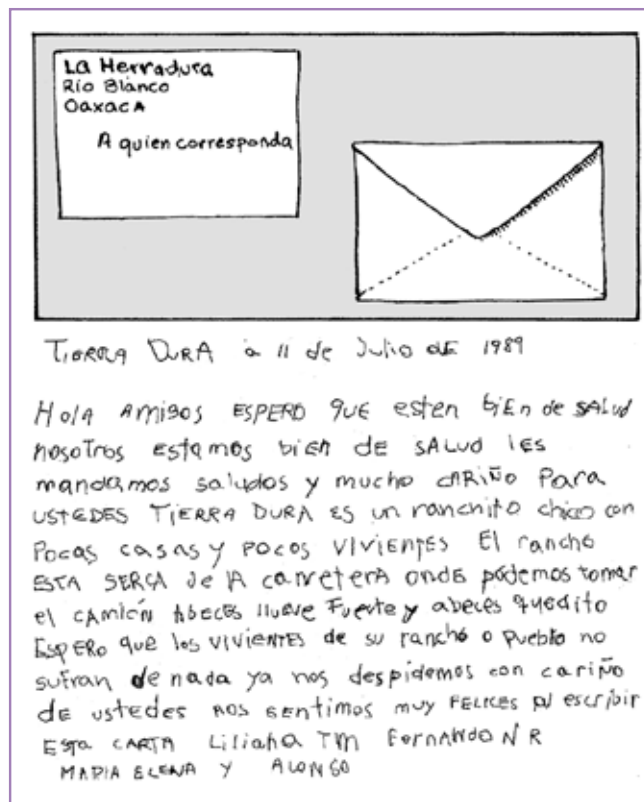 La Herradura
Río Blanco
Oaxaca
A quien corresponda
TIERRA DURA a 11 de Julio de 1989
Hola amigos ESPERO que esten biEn de SALUD
nosotros estamos bien de SALUD les
mandamos saludos y mucho cARiÑo Para
USTEDES TIERRA DURA es un ranchito chico con
Pocas casas y POCOS VIVIENTES El rancho
ESTA SERCA de lA carretera onde podemos tomar
el cAMión Abeces llueve Fuerte y abeces quedito
EspERO que los VIVIENTES de su rancho o Pueblo no
sufran de nada ya nos despidemos con cariño
de ustedes nos sentimos muy FELICES al escribir
ESTa CARTA Liliana TM FernANdo Ñ R
MARIA ELENA Y ALONSO